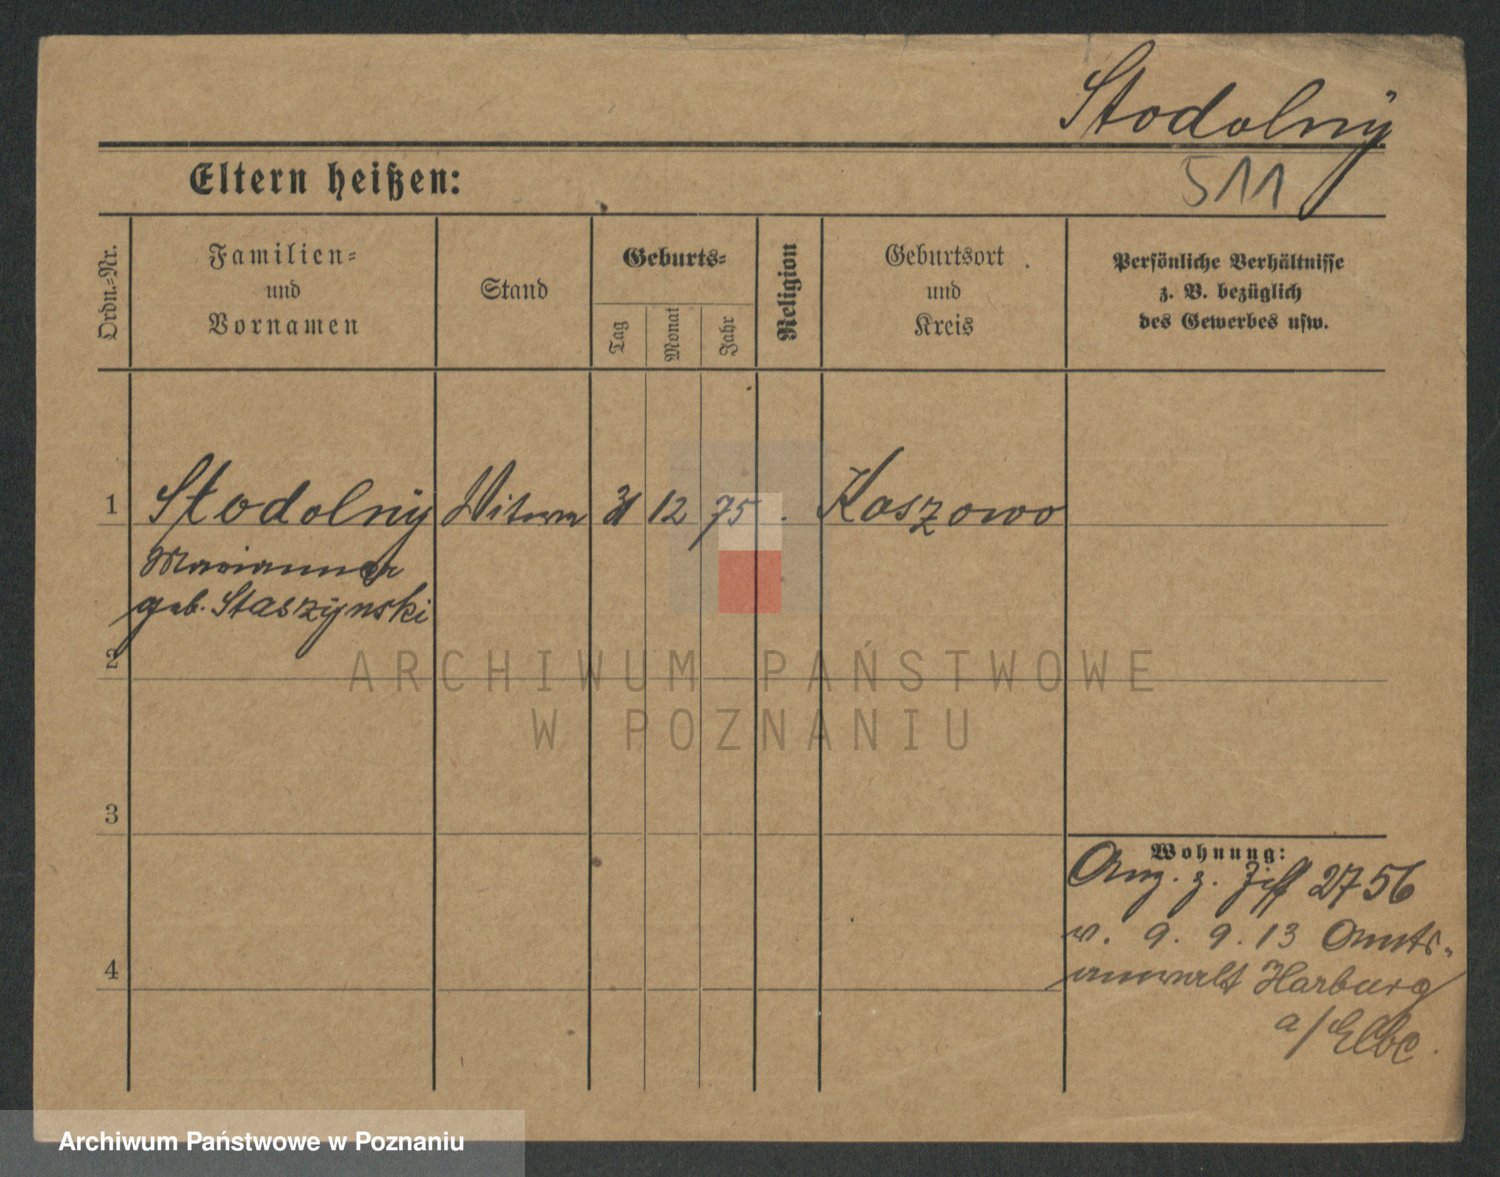 Stodolny
511
Eltern heißen:
Ordn.-Nr.
Familien-
und
Vornamen
Stand
Geburts-
Tag
Monat
Jahr
Religion
Geburtsort
und
Kreis
Persönliche Verhältnisse
z. B. bezüglich
des Gewerbes usw.
1 Stodolny Witwe 31 12 75 Kaszowo
Marianna
geb. Staszynski
2
3
4
Wohnung:
Anz. z. Ziff 2756
v. 9. 9. 13 Amts-
anwalt Harburg
a/Elbe.
ARCHIWUM PAŃSTWOWE
W POZNANIU
Archiwum Państwowe w Poznaniu